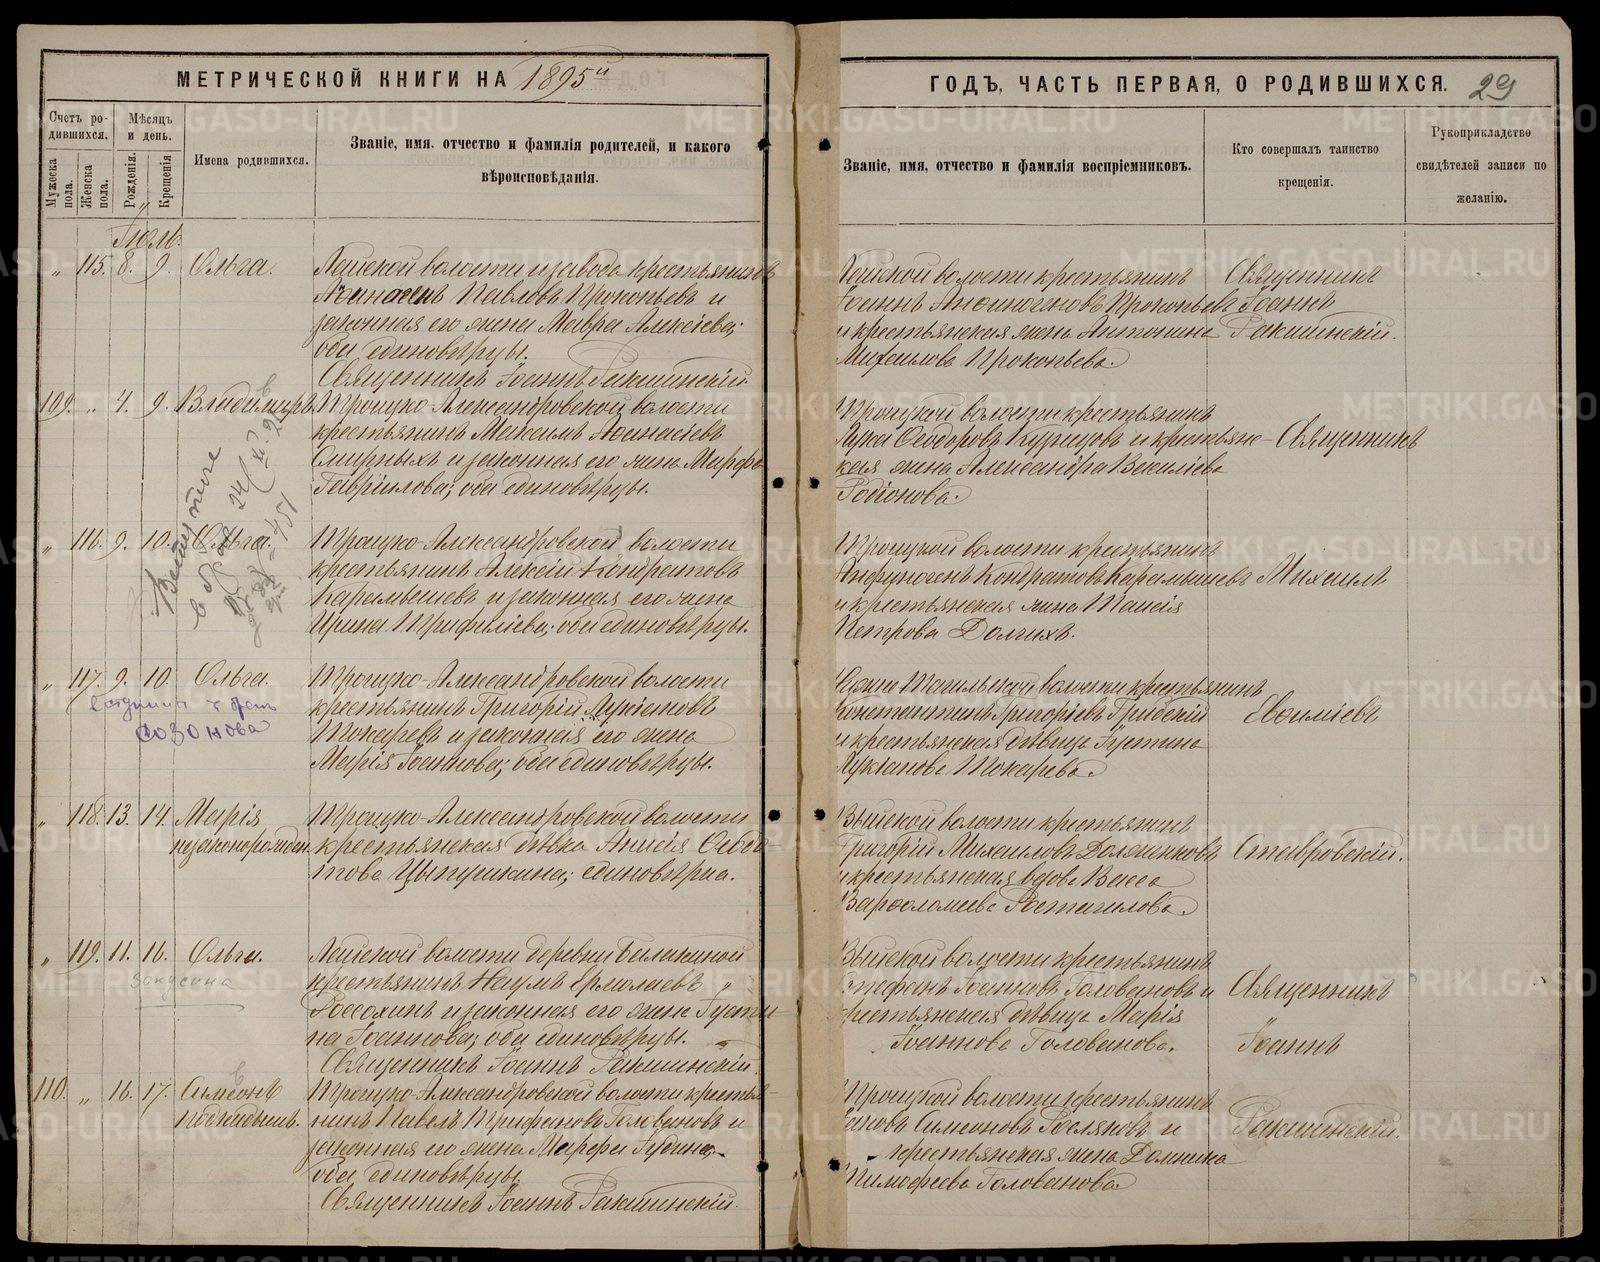 МЕТРИЧЕСКОЙ КНИГИ НА 1895й
ГОДЪ, ЧАСТЬ ПЕРВАЯ, О РОДИВШИХСЯ. 29
Счетъ ро-
дившихся.
Мужеска пола.
Женска пола.
Мѣсяцъ
и день.
Рожденія.
Крещенія
Имена родившихся.
Званіе, имя. отчество и фамилія родителей, и какого
вѣроисповѣданія.
Званіе, имя, отчество и фамилія воспріемниковъ.
Кто совершалъ таинство
крещенія.
Рукоприкладство
свидѣтелей записи по
желанію.
Іюль.
„ 115. 8. 9. Ольга.
Лайской волости и завода крестьянинъ
Павловъ Прокопьевъ и
законная его жена Мавра Алексіева;
оба единовѣрцы.
Священникъ Іоаннъ Ракшинскій.
волости крестьянинъ
Іоаннъ Прокопьевъ
и крестьянская жена Антонина
Михаилова Прокопьева.
Священникъ
Іоаннъ
Ракшинскій.
109. „ 4. 9. Владиміръ.
Троицко-Александровской волости
крестьянинъ Максимъ Аѳанасіевъ
Смирныхъ и законная его жена Марѳа
Гавріилова; оба единовѣрцы.
Троицкой волости крестьянинъ
Лука Ѳеодоровъ Кузнецовъ и крестьянс-
кая жена Александра Василіева
Родіонова.
Священникъ
„ 116. 9. 10. Ольга.
Троицко-Александровской волости
крестьянинъ Алексій Кондратовъ
Карамышевъ и законная его жена
Ирина Трифиліева; оба единовѣрцы.
Троицкой волости крестьянинъ
Анфиногенъ Кондратовъ Карамышевъ
и крестьянская жена Таисія
Петрова Долгихъ.
Михаилъ
„ 117. 9. 10. Ольга.
Созонова
Троицко-Александровской волости
крестьянинъ Григорій Лукіановъ
Токаревъ и законная его жена
Марія Іоаннова; оба единовѣрцы.
Тагильской волости крестьянинъ
Константинъ Григоріевъ
и крестьянская дѣвица Іустина
Лукіанова Токарева.
Евѳиміевъ
„ 118. 13. 14. Марія
незаконорожден.
Троицко-Александровской волости
крестьянская дѣвка Анисія Ѳедо-
това Цыпушкина; единовѣрка.
Выйской волости крестьянинъ
Григорій Михаиловъ Долженковъ
и крестьянская вдова Васса
Варѳоломеева
Ставровскій.
„ 119. 11. 16. Ольга.
Лайской волости деревни
крестьянинъ Наумъ Ермолаевъ
Россохинъ и законная его жена Іусти-
на Іоаннова; оба единовѣрцы.
Священникъ Іоаннъ Ракшинскій.
Выйской волости крестьянинъ
Стефанъ Іоанновъ Головановъ и
крестьянская дѣвица Марія
Іоаннова Голованова.
Священникъ
Іоаннъ
110. „ 16. 17. Симеонъ
Троицко-Александровской волости крестья-
нинъ Павелъ Трифоновъ Головановъ и
законная его жена Марѳа
оба единовѣрцы.
Священникъ Іоаннъ Ракшинскій.
Троицкой волости крестьянинъ
Симеоновъ и
крестьянская жена Домника
Тимоѳеева Голованова
Ракшинскій.
METRIKI.GASO-URAL.RU